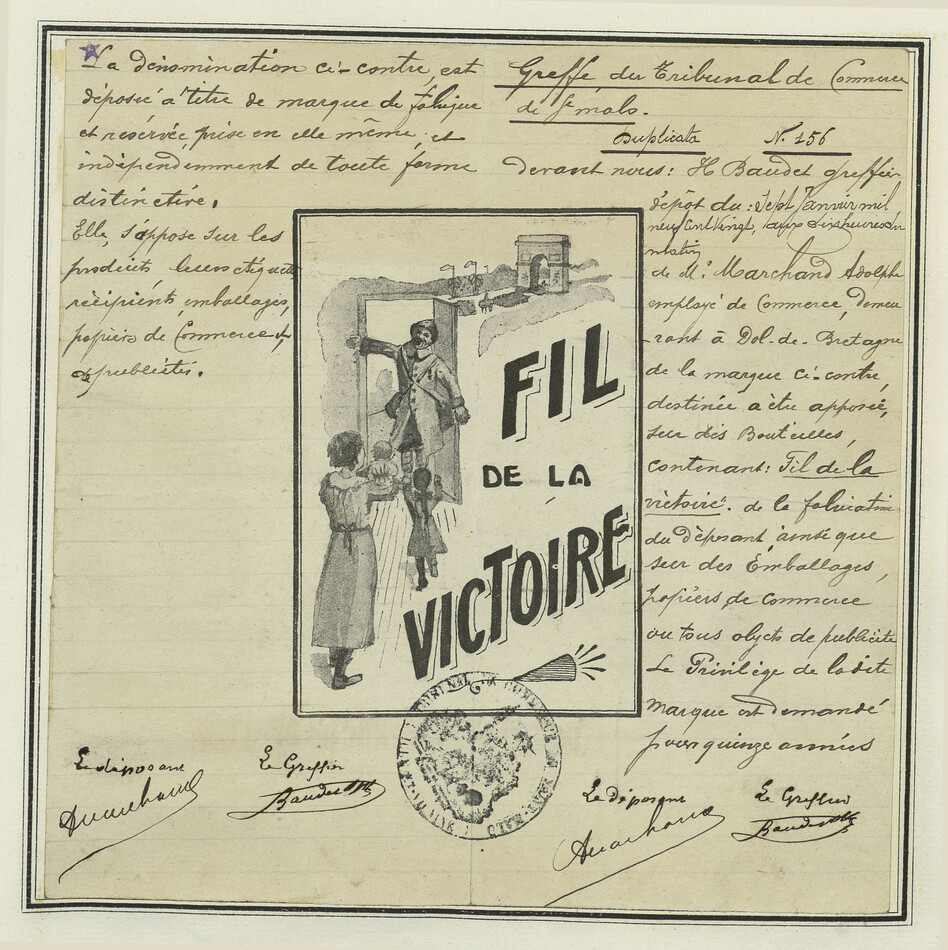 La dénomination ci-contre, est
déposée à titre de marque de fabrique
et reservée, prise en elle même, et
indépendemment de toute forme
distinctive.
Elle, s'appose sur les
produits leurs étiquettes
récipients, emballages,
papiers de Commerce et
publicités.
Greffe du Tribunal de Commerce
de St malo.
Duplicata N. 156
devant nous: H Baudet greffier
dépôt du: Sept Janvier mil
neuf cent vingt, aux dix heures du
matin
de Mr Marchand Adolphe
employé de Commerce, demeu
-rant à Dol-de-Bretagne
de la marque ci-contre,
destinée a être apposée,
sur des Bouteilles,
contenant: Fil de la
victoire". de la fabrication
du déposant, ainsi que
sur des Emballages,
papiers, de commerce
ou tous objets de publicité
Le Privilège de ladite
Marque est demandé
pour quinze années
FIL
DE LA
VICTOIRE
Le déposant Le Greffier
AMarchand Baudet
Le déposant Le Greffier
AMarchand Baudet
TRIBUNAL DE COMMERCE DE SAINT-MALO